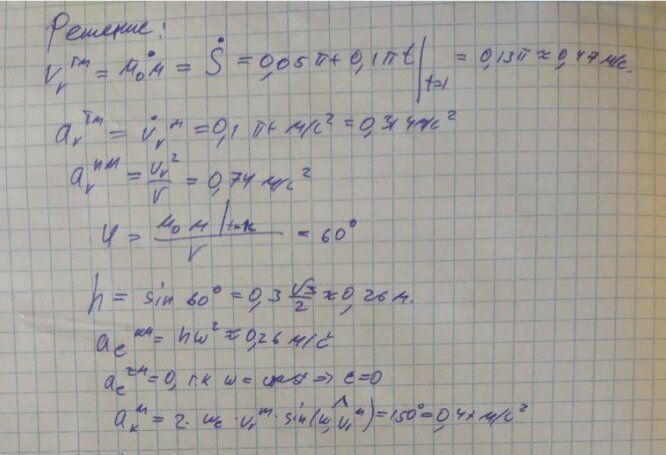 Решение:
V_r^тм = M₀M = Ṡ = 0,05π + 0,1πt |t=1 = 0,13π ≈ 0,47 м/с.
a_r^тм = V̇_r^м = 0,1π м/с² = 0,314 м/с²
a_r^нм = V_r²/r = 0,74 м/с²
φ = M₀M|t=1к / r = 60°
h = sin 60° = 0,3 √3/2 ≈ 0,26 м.
a_e^нм = hω² ≈ 0,26 м/с²
a_e^тм = 0, т.к ω = const => ε = 0
a_к^м = 2 · ω_e · V_r^м · sin(ω, V_r^м) = 150° = 0,47 м/с²